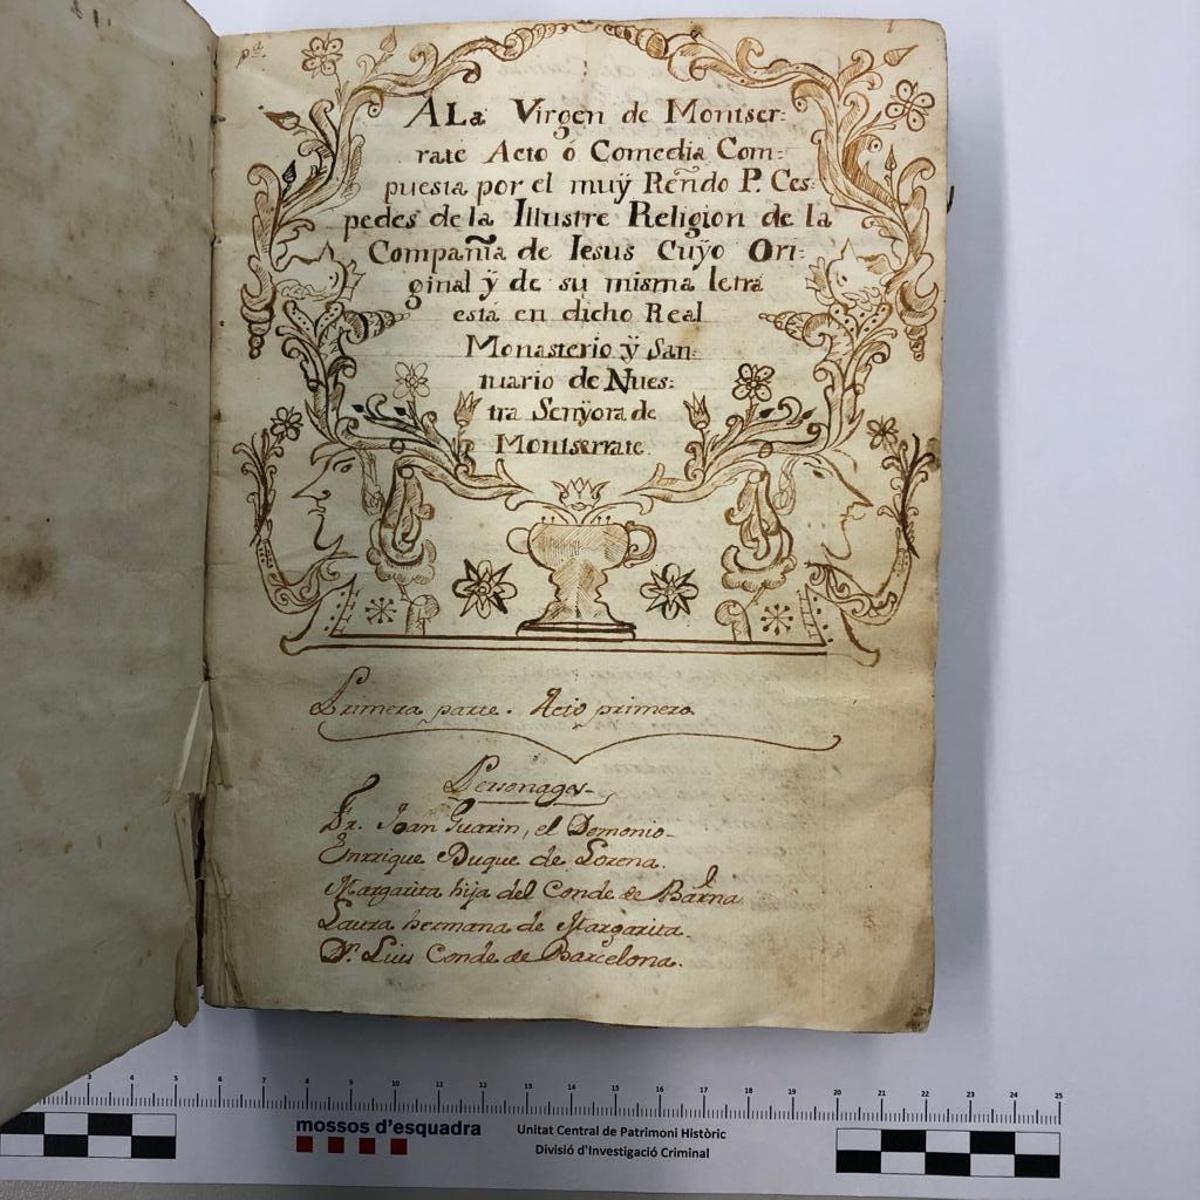 pª.
A La Virgen de Montser:
rate Acto ó Comedia Com:
puesta por el muÿ Reñdo P. Ces:
pedes de la Illustre Religion de la
Compañia de Iesus Cuÿo Ori:
ginal ÿ de su misma letra
está en dicho Real
Monasterio ÿ San:
tuario de Nues:
tra Senÿora de
Montserrate.
Primera parte. Acto primero.
Personages
Fr. Joan Guarin, el Demonio
Enrrique Duque de Lorena.
Margarita hija del Conde de Barña
Laura hermana de Margarita.
Dn. Luis Conde de Barcelona.
3 4 5 6 7 8 9 10 11 12 13 14 15 16 17 18 19 20 21 22 23 24 25
mossos d'esquadra
Unitat Central de Patrimoni Històric
Divisió d'Investigació Criminal